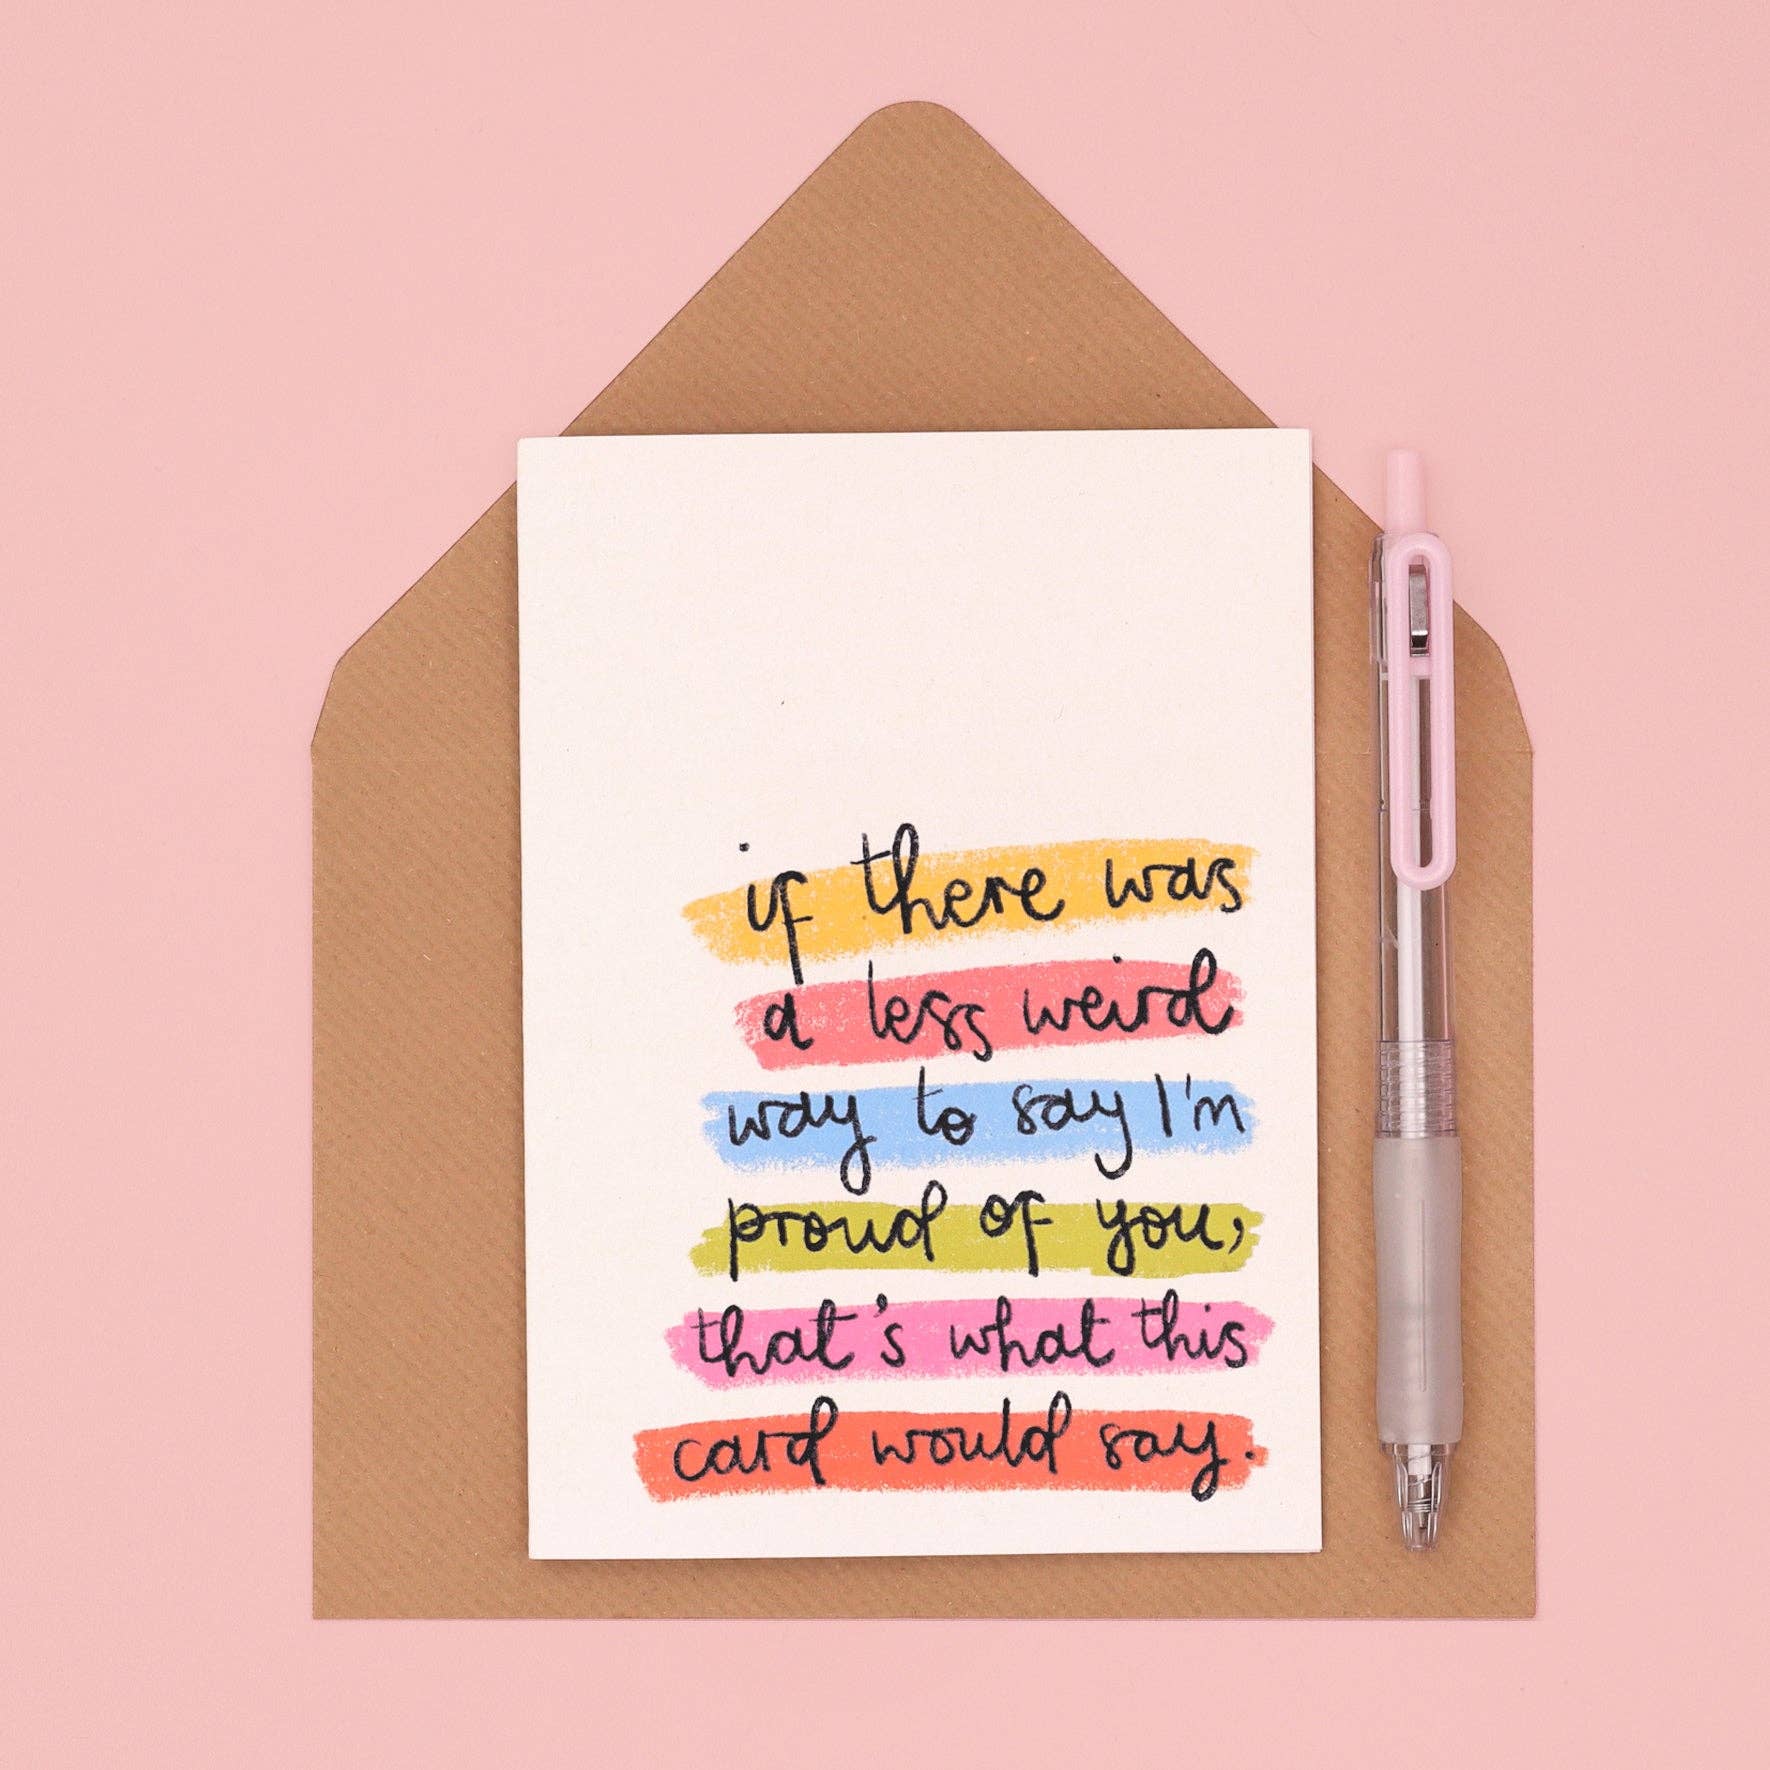 if there was
a less weird
way to say I'm
proud of you,
that's what this
card would say.